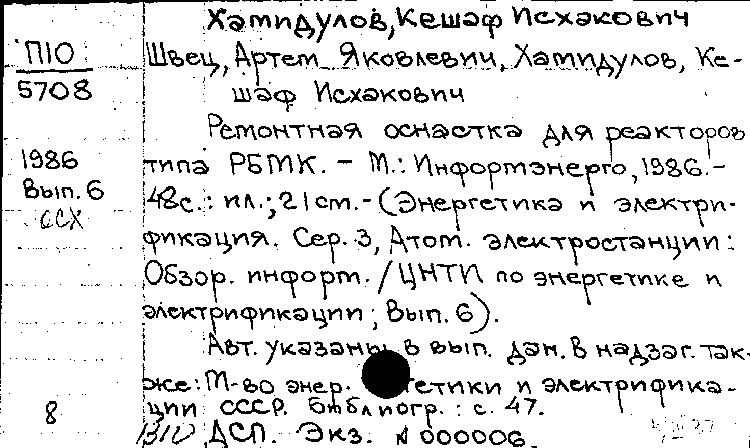 Хамидулов, Кешаф Исхакович
П10
5708
1986
Вып. 6
ССХ
8
Швец, Артем Яковлевич, Хамидулов, Ке-
шаф Исхакович
Ремонтная оснастка для реакторов
типа РБМК. – М.: Информэнерго, 1986.–
48с.: ил.; 21 см.–(Энергетика и электри-
фикация. Сер. 3, Атом. электростанции:
Обзор. информ. / ЦНТИ по энергетике и
электрификации; Вып. 6).
Авт. указаны в вып. дан. В надзаг. так-
же: М-во энергетики и электрифика-
ции СССР. Библиогр.: с. 47.
ДСП. Экз. N 000006.